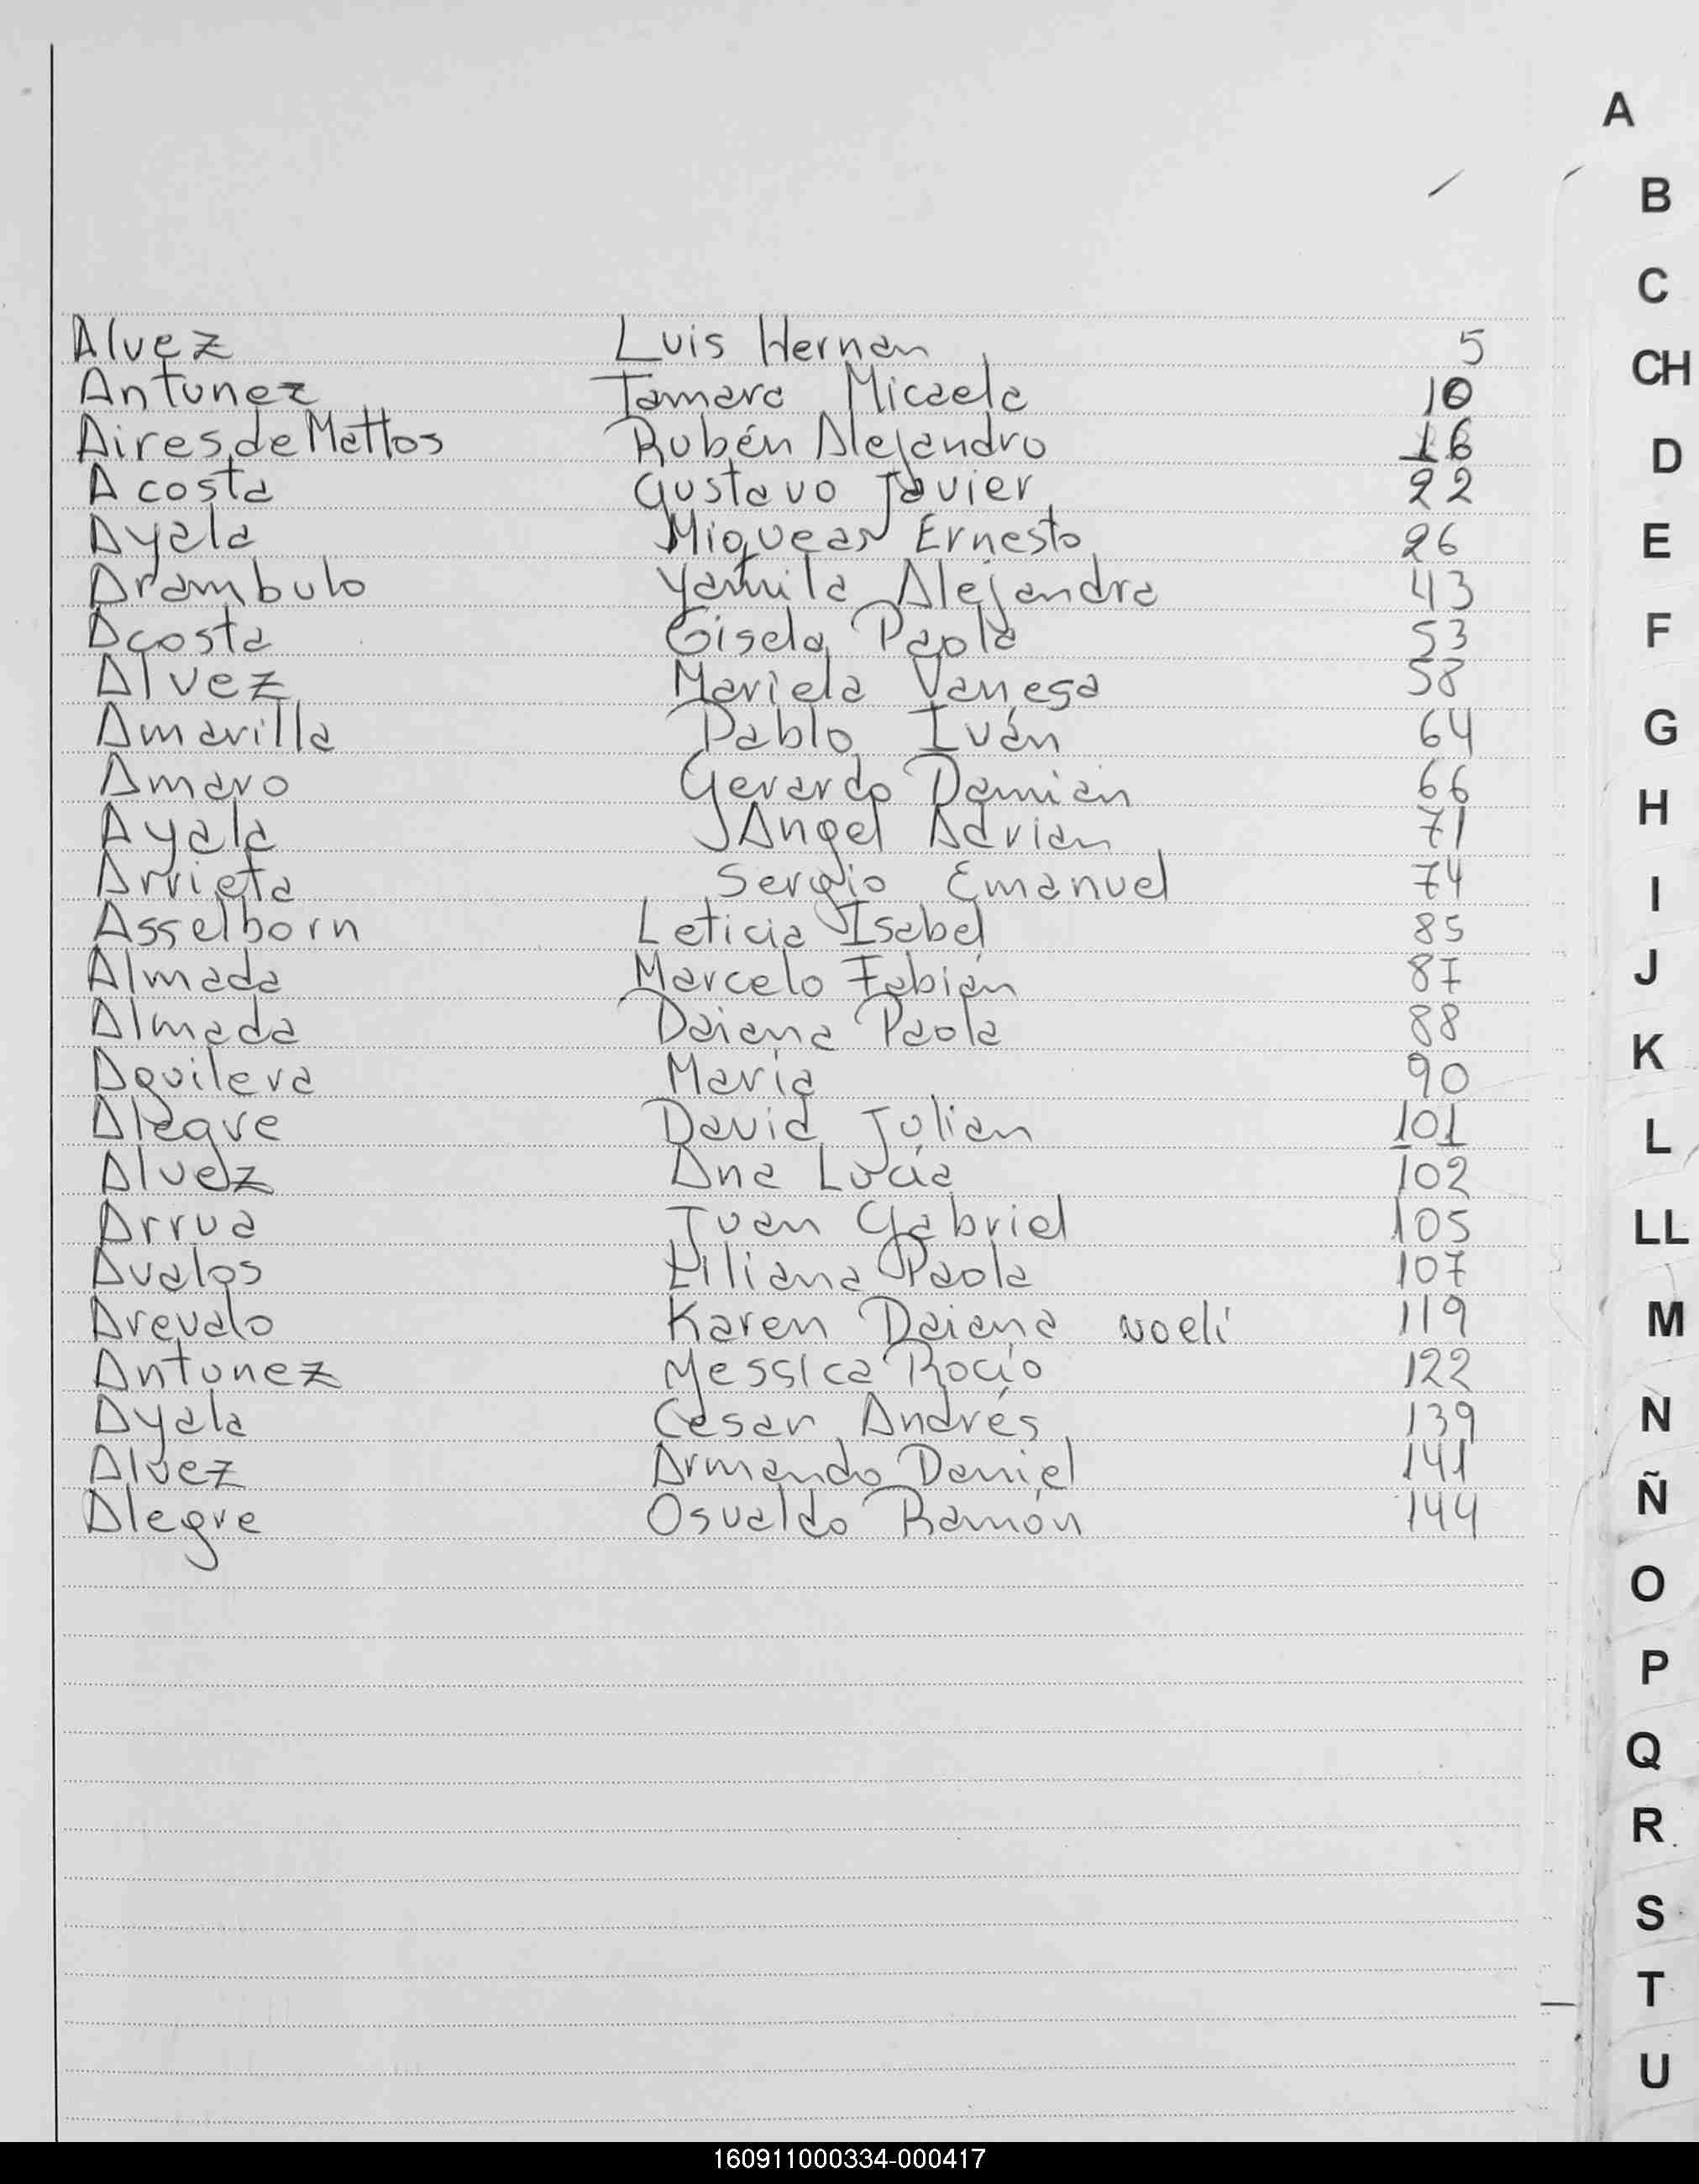 A
B
C
CH
D
E
F
G
H
I
J
K
L
LL
M
N
Ñ
O
P
Q
R
S
T
U
Alvez Luis Hernan 5
Antunez Tamara Micaela 10
Aires de Mattos Rubén Alejandro 16
Acosta Gustavo Javier 22
Ayala Miqueas Ernesto 26
Arambulo Yamila Alejandra 43
Acosta Gisela Paola 53
Alvez Mariela Vanesa 58
Amarilla Pablo Iván 64
Amaro Gerardo Damian 66
Ayala Angel Adrian 71
Arrieta Sergio Emanuel 74
Asselborn Leticia Isabel 85
Almada Marcelo Fabián 87
Almada Daiana Paola 88
Aguilera Maria 90
Alegre David Julian 101
Alvez Ana Lucía 102
Arrua Juan Gabriel 105
Avalos Liliana Paola 107
Arevalo Karen Daiana Noeli 119
Antunez Yessica Rocío 122
Ayala Cesar Andrés 139
Alvez Armando Daniel 141
Alegre Osvaldo Ramón 144
160911000334-000417